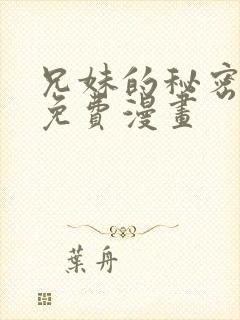 兄妹的秘密
免費漫畫
葉舟